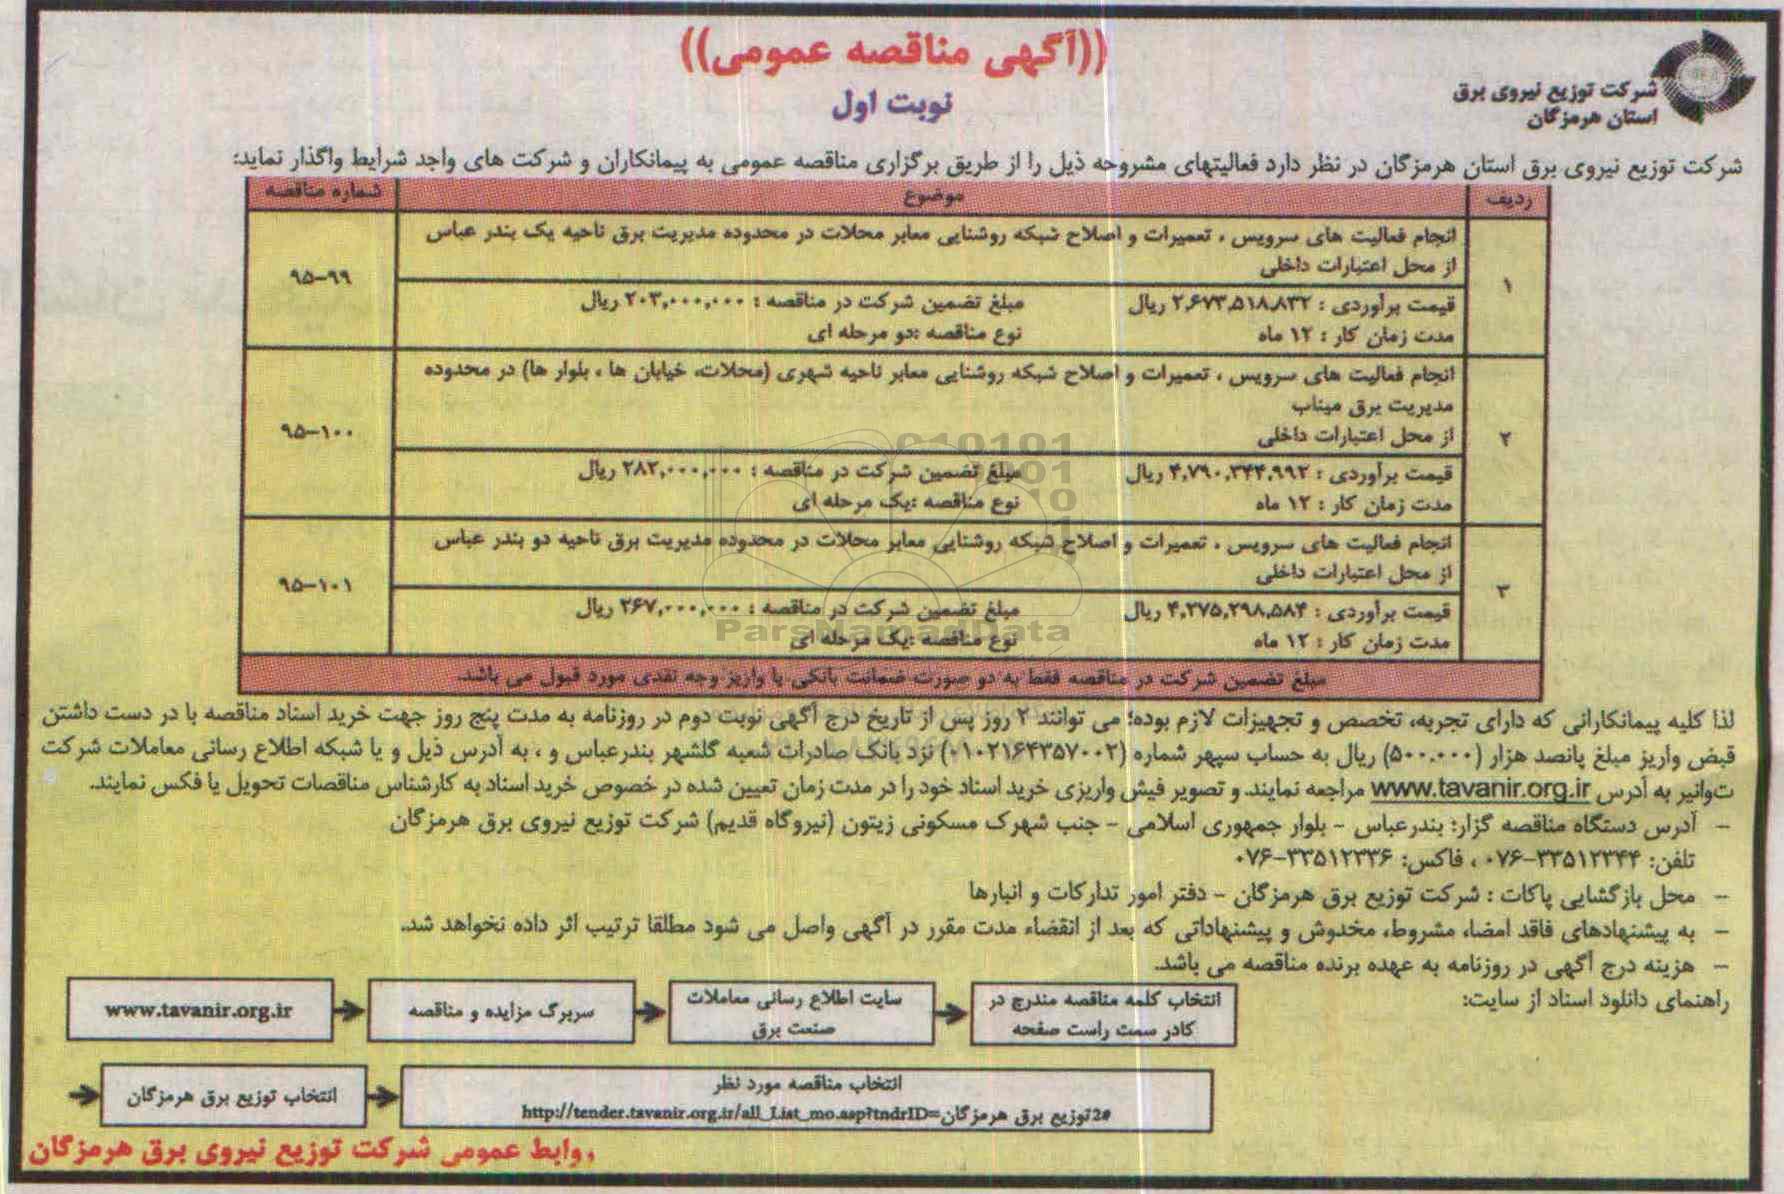 ((آگهی مناقصه عمومی))
نوبت اول
شرکت توزیع نیروی برق
استان هرمزگان
شرکت توزیع نیروی برق استان هرمزگان در نظر دارد فعالیتهای مشروحه ذیل را از طریق برگزاری مناقصه عمومی به پیمانکاران و شرکت های واجد شرایط واگذار نماید:
ردیف موضوع شماره مناقصه
۱
انجام فعالیت های سرویس ، تعمیرات و اصلاح شبکه روشنایی معابر محلات در محدوده مدیریت برق ناحیه یک بندر عباس
از محل اعتبارات داخلی
۹۵-۹۹
قیمت برآوردی : ۲,۶۷۳,۵۱۸,۸۳۲ ریال مبلغ تضمین شرکت در مناقصه : ۲۰۳,۰۰۰,۰۰۰ ریال
مدت زمان کار : ۱۲ ماه نوع مناقصه :دو مرحله ای
۲
انجام فعالیت های سرویس ، تعمیرات و اصلاح شبکه روشنایی معابر ناحیه شهری (محلات، خیابان ها ، بلوار ها) در محدوده
مدیریت برق میناب
از محل اعتبارات داخلی
۹۵-۱۰۰
قیمت برآوردی : ۴,۷۹۰,۳۴۴,۹۹۲ ریال مبلغ تضمین شرکت در مناقصه : ۲۸۲,۰۰۰,۰۰۰ ریال
مدت زمان کار : ۱۲ ماه نوع مناقصه :یک مرحله ای
۳
انجام فعالیت های سرویس ، تعمیرات و اصلاح شبکه روشنایی معابر محلات در محدوده مدیریت برق ناحیه دو بندر عباس
از محل اعتبارات داخلی
۹۵-۱۰۱
قیمت برآوردی : ۴,۲۷۵,۲۹۸,۵۸۴ ریال مبلغ تضمین شرکت در مناقصه : ۲۶۷,۰۰۰,۰۰۰ ریال
مدت زمان کار : ۱۲ ماه نوع مناقصه :یک مرحله ای
مبلغ تضمین شرکت در مناقصه فقط به دو صورت ضمانت بانکی یا واریز وجه نقدی مورد قبول می باشد.
ParsNamadData
لذا کلیه پیمانکارانی که دارای تجربه، تخصص و تجهیزات لازم بوده؛ می توانند ۲ روز پس از تاریخ درج آگهی نوبت دوم در روزنامه به مدت پنج روز جهت خرید اسناد مناقصه با در دست داشتن
قبض واریز مبلغ پانصد هزار (۵۰۰.۰۰۰) ریال به حساب سپهر شماره (۰۱۰۲۱۶۴۳۵۷۰۰۲) نزد بانک صادرات شعبه گلشهر بندرعباس و ، به آدرس ذیل و یا شبکه اطلاع رسانی معاملات شرکت
توانیر به آدرس www.tavanir.org.ir مراجعه نمایند. و تصویر فیش واریزی خرید اسناد خود را در مدت زمان تعیین شده در خصوص خرید اسناد به کارشناس مناقصات تحویل یا فکس نمایند.
- آدرس دستگاه مناقصه گزار: بندرعباس - بلوار جمهوری اسلامی - جنب شهرک مسکونی زیتون (نیروگاه قدیم) شرکت توزیع نیروی برق هرمزگان
تلفن: ۳۳۵۱۲۳۴۴-۰۷۶ ، فاکس: ۳۳۵۱۲۳۳۶-۰۷۶
- محل بازگشایی پاکات : شرکت توزیع برق هرمزگان - دفتر امور تدارکات و انبارها
- به پیشنهادهای فاقد امضاء، مشروط، مخدوش و پیشنهاداتی که بعد از انقضاء مدت مقرر در آگهی واصل می شود مطلقا ترتیب اثر داده نخواهد شد.
- هزینه درج آگهی در روزنامه به عهده برنده مناقصه می باشد.
راهنمای دانلود اسناد از سایت:
www.tavanir.org.ir
سربرگ مزایده و مناقصه
سایت اطلاع رسانی معاملات
صنعت برق
انتخاب کلمه مناقصه مندرج در
کادر سمت راست صفحه
انتخاب توزیع برق هرمزگان
انتخاب مناقصه مورد نظر
http://tender.tavanir.org.ir/all_List_mo.asp?tndrID=توزیع برق هرمزگان2#
روابط عمومی شرکت توزیع نیروی برق هرمزگان